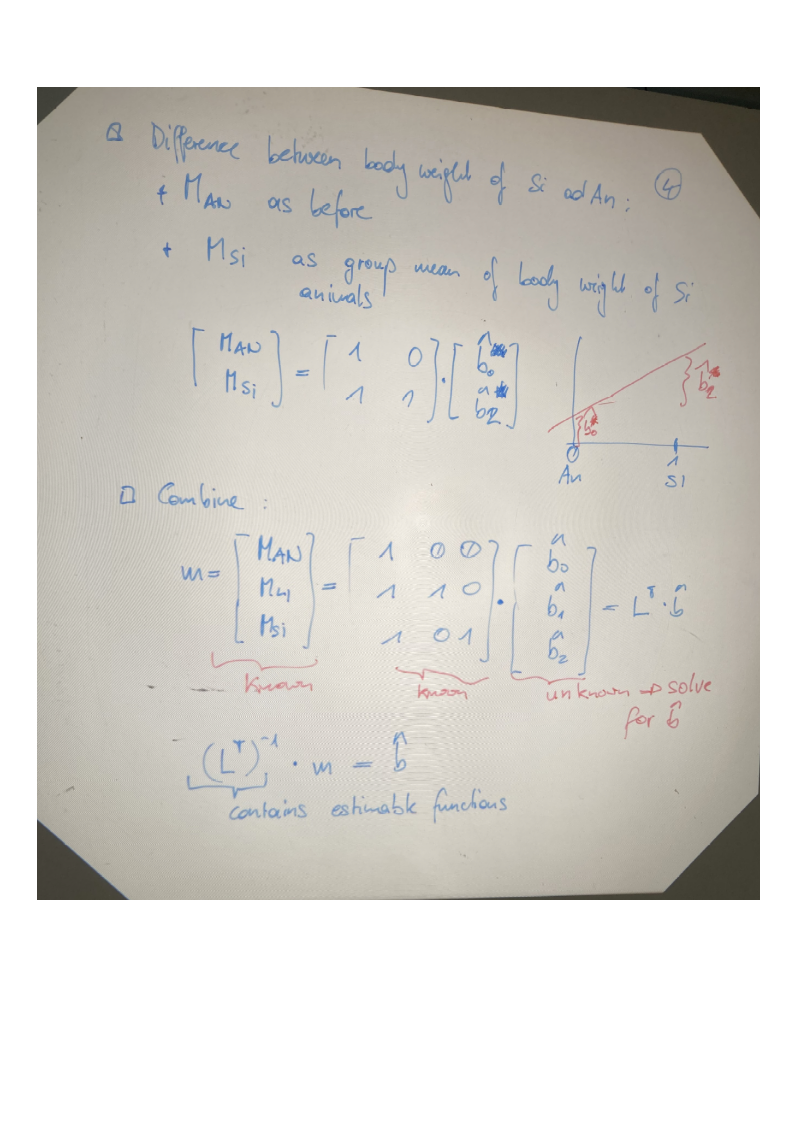 Difference between body weight of Si ad An: ④
+ M_AN as before
+ M_Si as group mean of body weight of Si
animals
[M_AN; M_Si] = [1 0; 1 1] · [b̂_0; b̂_2]
b̂_2
b̂_0
0 1
An SI
Combine :
m = [M_AN; M_LI; M_Si] = [1 0 0; 1 1 0; 1 0 1] · [b̂_0; b̂_1; b̂_2] = L^T · b̂
known known unknown → solve
for b̂
(L^T)^-1 · m = b̂
contains estimable functions